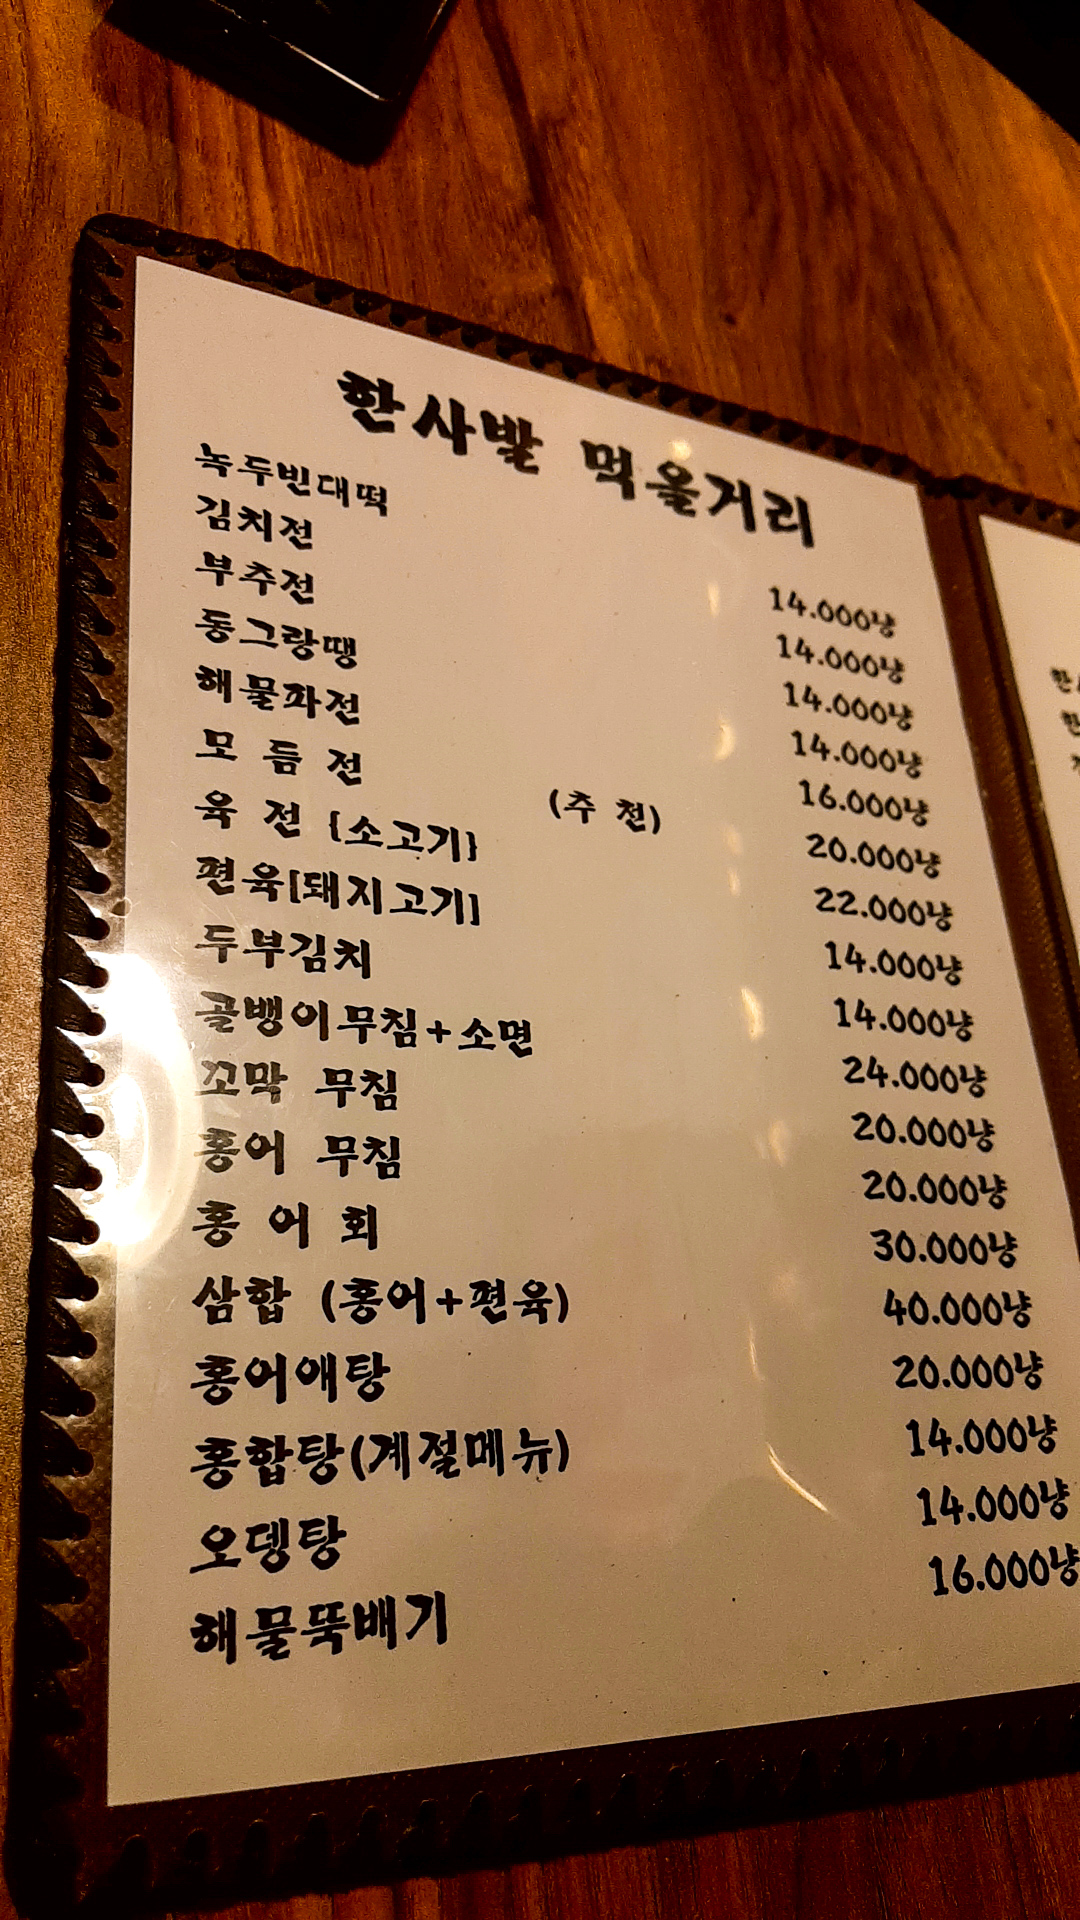 한사발 먹을거리
녹두빈대떡 14.000냥
김치전 14.000냥
부추전 14.000냥
동그랑땡 14.000냥
해물파전 16.000냥
모 듬 전 (추 천) 20.000냥
육 전 [소고기] 22.000냥
편육[돼지고기] 14.000냥
두부김치 14.000냥
골뱅이무침+소면 24.000냥
꼬막 무침 20.000냥
홍어 무침 20.000냥
홍 어 회 30.000냥
삼합 (홍어+편육) 40.000냥
홍어애탕 20.000냥
홍합탕(계절메뉴) 14.000냥
오뎅탕 14.000냥
해물뚝배기 16.000냥